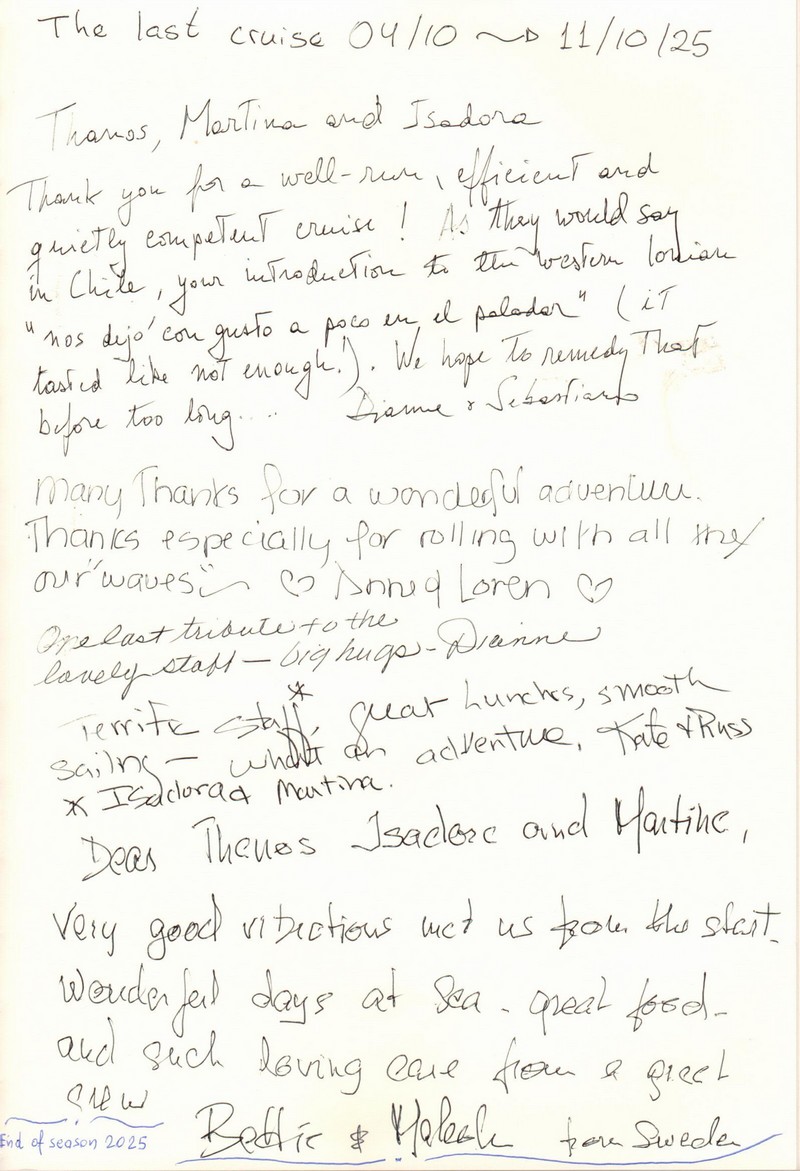 The last cruise 04/10 → 11/10/25
Thanos, Martina and Isadora
Thank you for a well-run, efficient and
quietly competent cruise! As they would say
in Chile, your introduction to the western Ionian
"nos dejó con gusto a poco en el paladar" (it
tasted like not enough!). We hope to remedy that
before too long.... Dianne & Sebastiano
Many Thanks for a wonderful adventure.
Thanks especially for rolling with all
our "waves" ♡ Loren ♡
One last tribute to the
lovely staff — big hugs - Dianne
Terrific staff*, great lunches, smooth
sailing — what an adventure. Kate & Russ
* Isadora & Martina.
Dear Thanos Isadora and Martina,
Very good vibrations met us from the start.
Wonderful days at sea - great food -
and such loving care from a great
crew
End of season 2025
& from Sweden